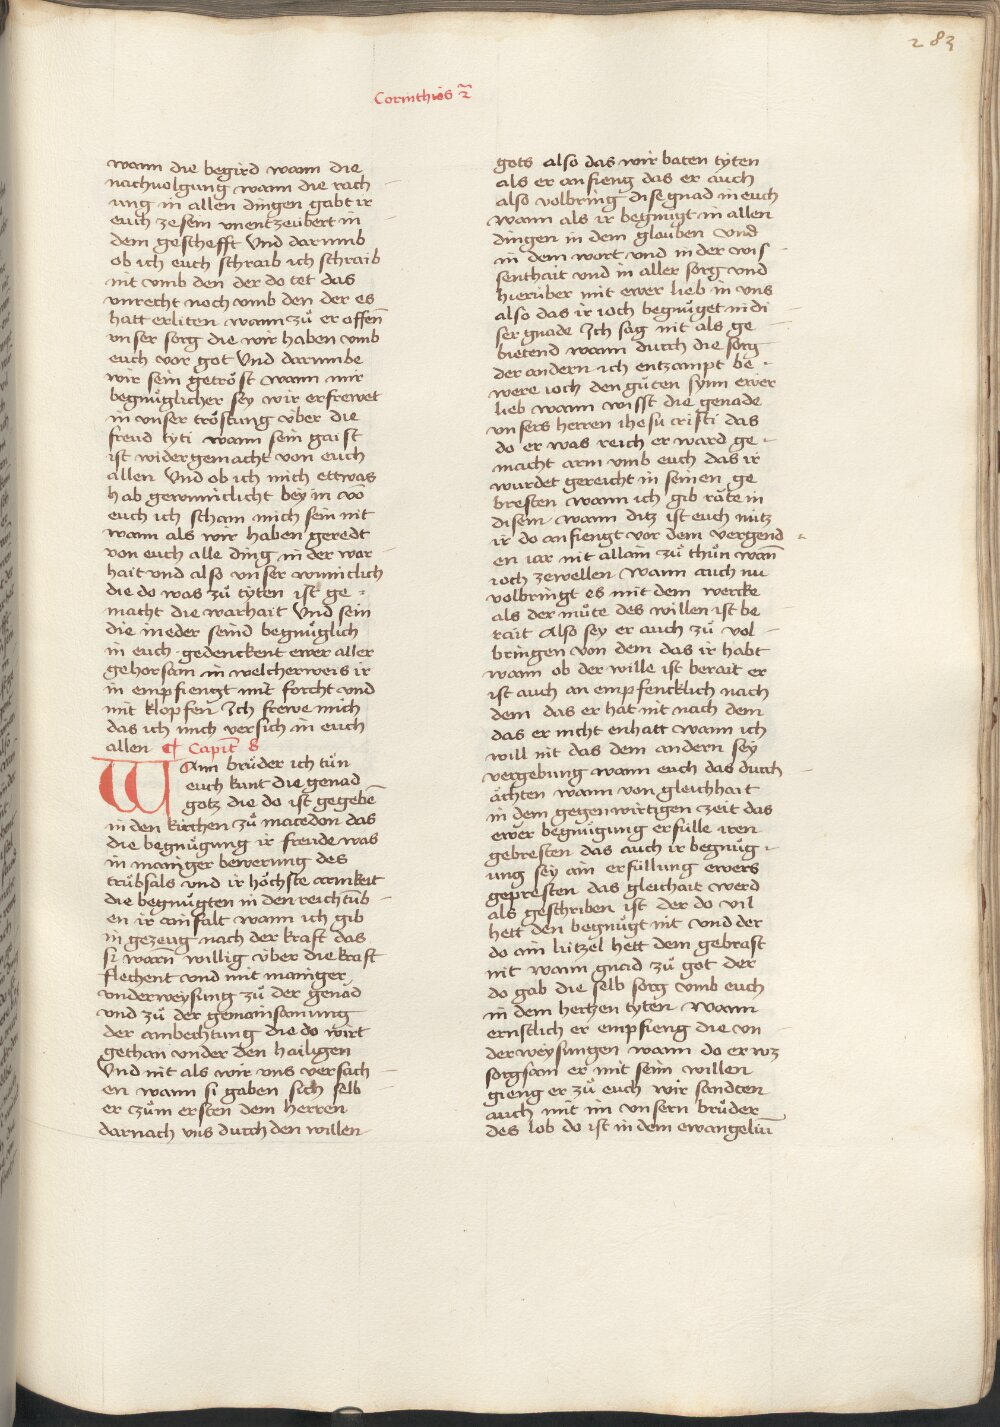 283
Corinthios 2
wann die begird wann die
nachuolgung wann die rach
ung in allen dingen gabt ir
euch ze sein vnentzeubert in
dem geschefft Und darumb
ob ich euch schraib ich schraib
nit vmb den der do tet das
vnrecht noch vmb den der es
hatt erliten wann zů er offen̄
vnser sorg die wir haben vmb
euch vor got Und darumbe
wir sein getröst wann mir
begnuͦglicher sey wir erfrewet
in vnser tröstung über die
freud tyti wann sein gaist
ist widergemacht von euch
allen Und ob ich mich ettwas
hab gewunniclicht bey im vō
euch ich scham mich sein nit
wann als wir haben geredt
von euch alle ding in der war
hait vnd also vnser wunniclich
die do was zuͦ tyten ist ge
macht die warhait Und sein
die ineder seind begnuͦglich
in euch gedenckent ewer aller
gehorsam in welcherweis ir
in empfiengt mit forcht vnd
mit klopfen Ich frewe mich
das ich mich versich in euch
allen ¶ Capit̄ 8
Wann bruͦder ich tuͦn
euch kunt die genad
gotz die do ist gegebē
in den kirchen zuͦ macedon das
die begnuͦgung ir freude was
in maniger bewerung des
truͤbsals und ir höchste armkeit
die begnuͦgten in den reichtūb
en ir ainfalt wann ich gib
in gezeug nach der kraft das
si warn̄ willig über die kraft
flechent vnd mit maniger
vnderweysung zuͦ der genad
vnd zuͦ der gemainsamung
der ambechtung die do wirt
gethan vnder den hailigen
Und nit als wir vns versach
en wann si gaben sich selb
er zuͦm ersten dem herren
darnach vns durch den willen
gots also das wir baten tyten
als er anfieng das er auch
also volbring dise gnad in euch
wann als ir begnuͦgt in allen
dingen in dem glauben vnd
in dem wort vnd in der wis
senthait vnd in aller sorg vnd
hierüber mit ewer lieb in vns
also das ir ioch begnuͦget in di
ser gnade Ich sag nit als ge
bietend wann durch die sorg
der andern ich entzampt be
were ioch den guͦten synn ewer
lieb wann wisst die genade
vnsers herren ihesu cristi das
do er was reich er ward ge
macht arm vmb euch das ir
wurdet gereicht in seinen ge
bresten wann ich gib räte in
disem wann ditz ist euch nütz
ir do anfiengt vor dem vergend
en iar nit allain zuͦ thuͦn wan̄
ioch zewellen Wann auch nu
volbringt es mit dem wercke
als der muͦte des willen ist be
rait Also sey er auch zuͦ vol
bringen von dem das ir habt
wann ob der wille ist berait er
ist auch an empfencklich nach
dem das er hat nit nach dem
das er nicht enhatt wann ich
will nit das dem andern sey
vergebung wann euch das durch
ächten wann von gleichhait
in dem gegenwirtigen zeit das
ewer begnuͦgung erfülle iren
gebresten das auch ir begnuͦg
ung sey ain erfüllung ewers
gepresten das gleichait werd
als geschriben ist der do vil
hett den begnuͦgt nit vnd der
do ain lützel hett dem gebrast
nit wann gnad zuͦ got der
do gab die selb sorg vmb euch
in dem hertzen tyten wann
ernstlich er empfieng die vn
derweysungen wann do er wz
sorgsam er mit seim willen
gieng er zuͦ euch wir sandten
auch mit im vnsern bruͦder
des lob do ist in dem ewangeliū